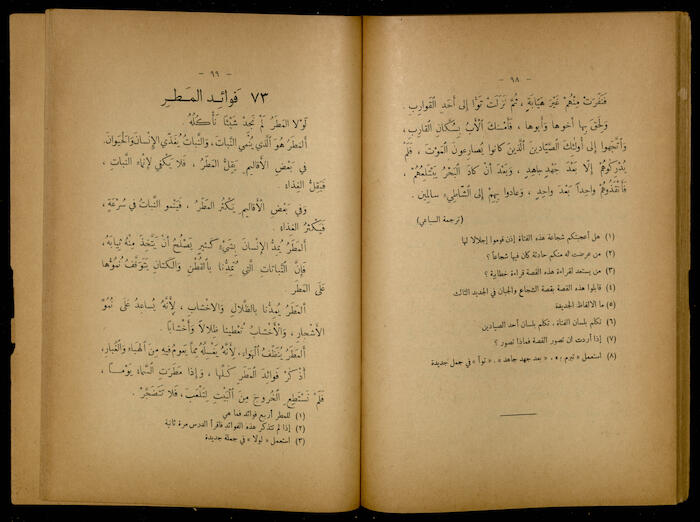 - ٩٨ -
فَنَفَرَتْ مِنْهُمْ غَيْرَ هَيَّابَةٍ ، ثُمَّ نَزَلَتْ تَوًّا إلى أَحَدِ القَوارِبِ .
وَلَحِقَ بِها أَخوها وَأَبوها ، فَأَمْسَكَ الأَبُ بِسُكَّانِ القارِبِ ،
وَاتَّجَهوا إلى أُولئِكَ الصَّيَّادينَ الَّذينَ كانوا يُصارِعُونَ المَوْتَ ، فَلَمْ
يُدْرِكُوهُمْ إلَّا بَعْدَ جَهْدٍ جاهِدٍ ، وَبَعْدَ أنْ كادَ البَحْرُ يَبْتَلِعُهُمْ ،
فَأَنْقَذُوهُمْ واحِداً بَعْدَ واحِدٍ ، وَعادوا بِهِمْ إلى الشَّاطِىءِ سالِمين .
(ترجمة السباعي)
(١) هل أعجبتكم شجاعة هذه الفتاة إذن قوموا إجلالا لها
(٢) من عرضت له منكم حادثة كان فيها شجاعاً ؟
(٣) من يستعد لقراءة هذه القصة قراءة خطابية ؟
(٤) قابلوا هذه القصة بقصة الشجاع والجبان في الجديد الثالث
(٥) ما الالفاظ الجديدة
(٦) تكلم بلسان الفتاة . تكلم بلسان أحد الصيادين
(٧) إذا أردت ان تصور القصة فماذا تصور ؟
(٨) استعمل «بعد جهد جاهد» . «تواً» في جمل جديدة
- ٩٩ -
٧٣ فوائد المطر
لَوْلا المَطَرُ لَمْ تَجِدْ شَيْئًا تَأْكُلُهُ
المَطَرُ هُوَ الَّذي يُنَمِّي النَّباتَ ، وَالنَّباتُ يُغَذِّي الإنْسانَ وَالحَيَوانَ.
في بَعْضِ الأَقاليمِ يَقِلُّ المَطَرُ ، فَلا يَكْفي لِإنْماءِ النَّباتِ ،
فَيَقِلُّ الغِذاء .
وَفي بَعْضِ الأَقاليمِ يَكْثُرُ المَطَرُ ، فَيَنْمو النَّباتُ في سُرْعَةٍ ،
فَيَكْثُرُ الغِذاء
المَطَرُ يُمِدُّ الإنْسانَ بِشَيْءٍ كَثيرٍ يَصْلُحُ أَنْ يَتَّخِذَ مِنْهُ ثِيابَهُ ،
فَإنَّ النَّباتاتِ الَّتي تُمِدُّنا بِالقُطْنِ وَالكَتَّانِ يَتَوَقَّفُ نُمُوُّها
عَلى المَطَر
المَطَرُ يُمِدُّنا بِالظِّلالِ وَالاخْشابِ ، لِأَنَّهُ يُساعِدُ عَلى نُمُوِّ
الأَشْجارِ ، وَالأَشْجارُ تُعْطينا ظِلالاً وَأَخْشابًا .
المَطَرُ يُنَظِّفُ الهَواءَ ، لِأَنَّهُ يَغْسِلُهُ مِمَّا يَعومُ فيهِ مِنَ الهَباءِ وَالغُبارِ.
أُذْكُرْ فَوائِدَ المَطَرِ كُلَّها ، وَإذا مَطَرَتِ السَّماءُ يَوْمًا ،
فَلَمْ تَسْتَطِعِ الخُروجَ مِنَ البَيْتِ لِتَلْعَبَ ، فَلا تَتَضَجَّرْ .
(١) للمطر أربع فوائد فما هي
(٢) إذا لم تتذكر هذه الفوائد فاقرأ الدرس مرة ثانية
(٣) استعمل «لولا» في جملة جديدة